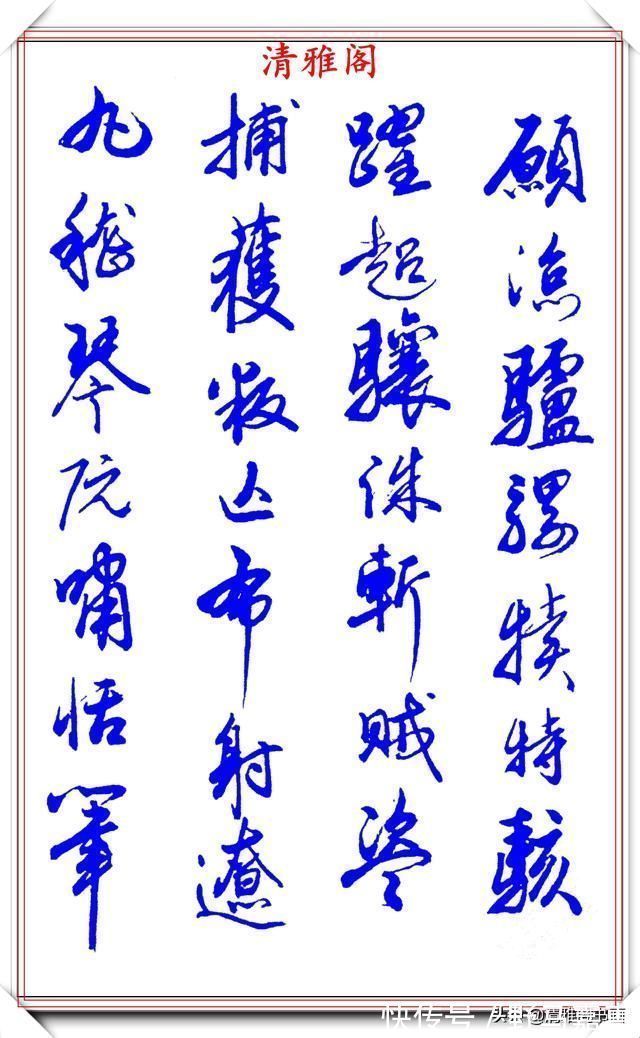 清雅阁
願涼驢騾犢特駭
躍超驤誅斬賊盜
捕獲叛亡布射遼
丸嵇琴阮嘯恬筆
快传号 /